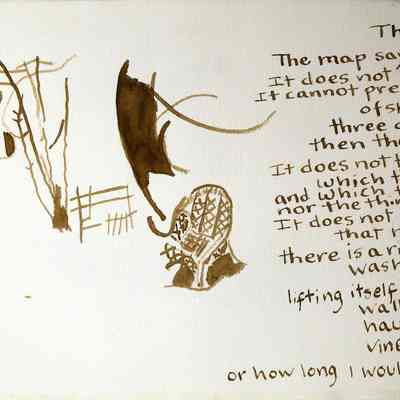 Th
The map say
It does not
It cannot pre
of s
three
then th
It does not t
which t
and which t
nor the thi
It does not
that
there is a r
wash
lifting itself
wal
hau
vine
or how long I woul